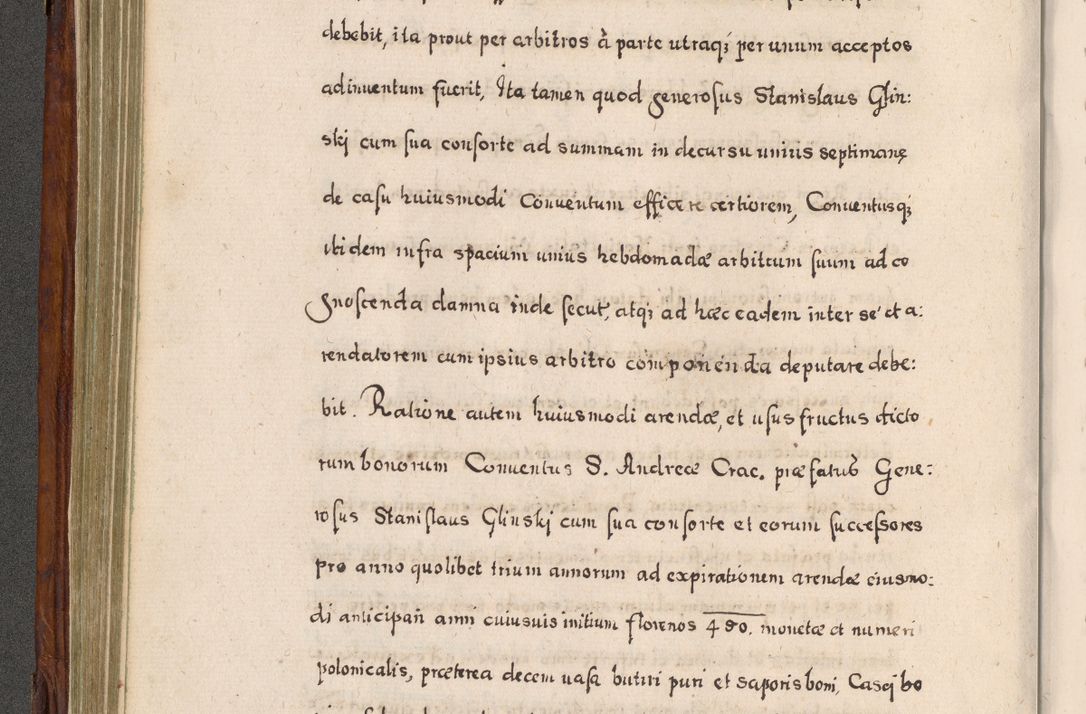 debebit, ita prout per arbitros à parte utraq; per unum acceptos
adinventum fuerit, Ita tamen quod generosus Stanislaus Glin:
skj cum sua consorte ad summam in decursu unius septimanę
de casu huiusmodi Conventum efficere certiorem, Conventusq;
itidem infra spacium unius hebdomadæ arbitrum suum ad co
gnoscenda damna inde secut, atq; ad hæc eadem inter se et a:
rendatorem cum ipsius arbitro componenda deputare debe:
bit. Ratione autem huiusmodi arendæ, et usus fructus dicto
rum bonorum Conventus S. Andreæ Crac. præfatus Gene:
rosus Stanislaus Glinskj cum sua consorte et eorum successores
pro anno quolibet trium annorum ad expirationem arendæ eiusmo:
di anticipañ anni cuiusuis initium florenos 450. monetæ et numeri
polonicalis, præterea decem uasa butiri puri et saporis boni, Casej bo